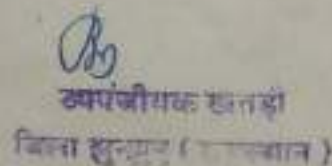 उपपंजीयक खेतड़ी
जिला झुन्झुनू (राजस्थान)